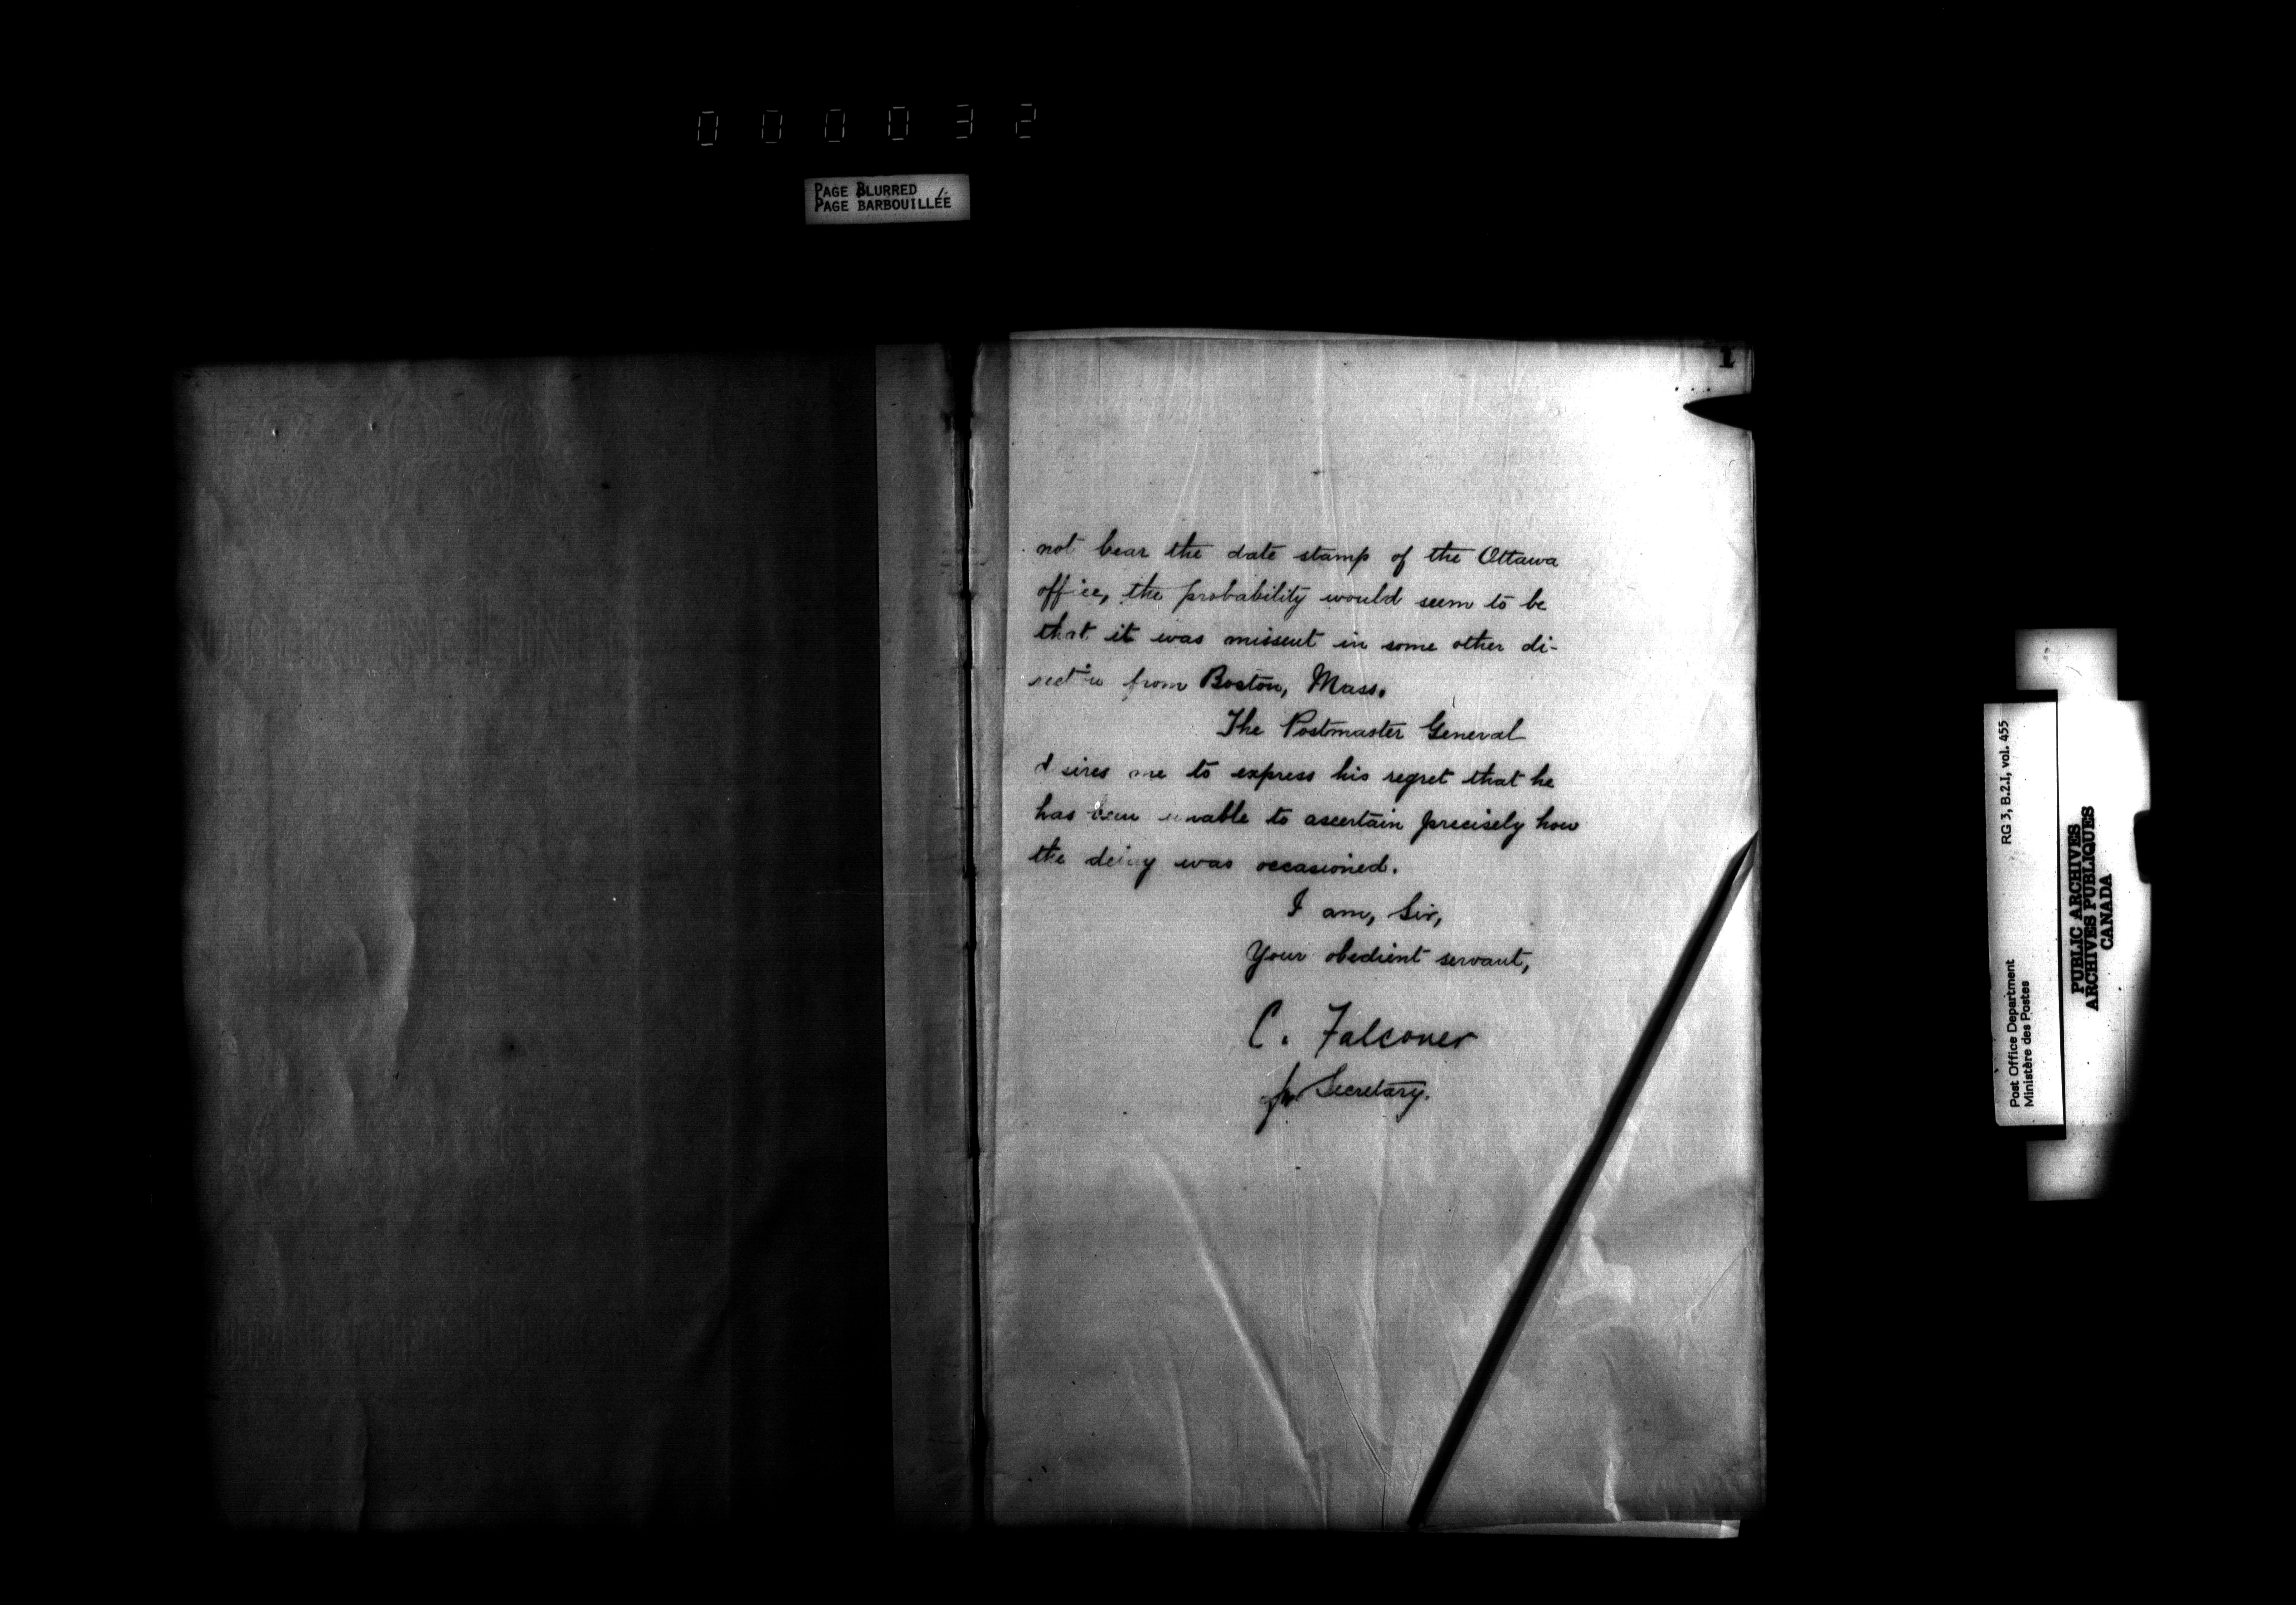 000032
PAGE BLURRED
PAGE BARBOUILLÉE
1
not bear the date stamp of the Ottawa
office, the probability would seem to be
that it was missent in some other di-
rection from Boston, Mass.
The Postmaster General
desires me to express his regret that he
has been unable to ascertain precisely how
the delay was occasioned.
I am, Sir,
Your obedient servant,
C. Falconer
for Secretary.
RG 3, B.2.I, vol. 455
Post Office Department
Ministère des Postes
PUBLIC ARCHIVES
ARCHIVES PUBLIQUES
CANADA